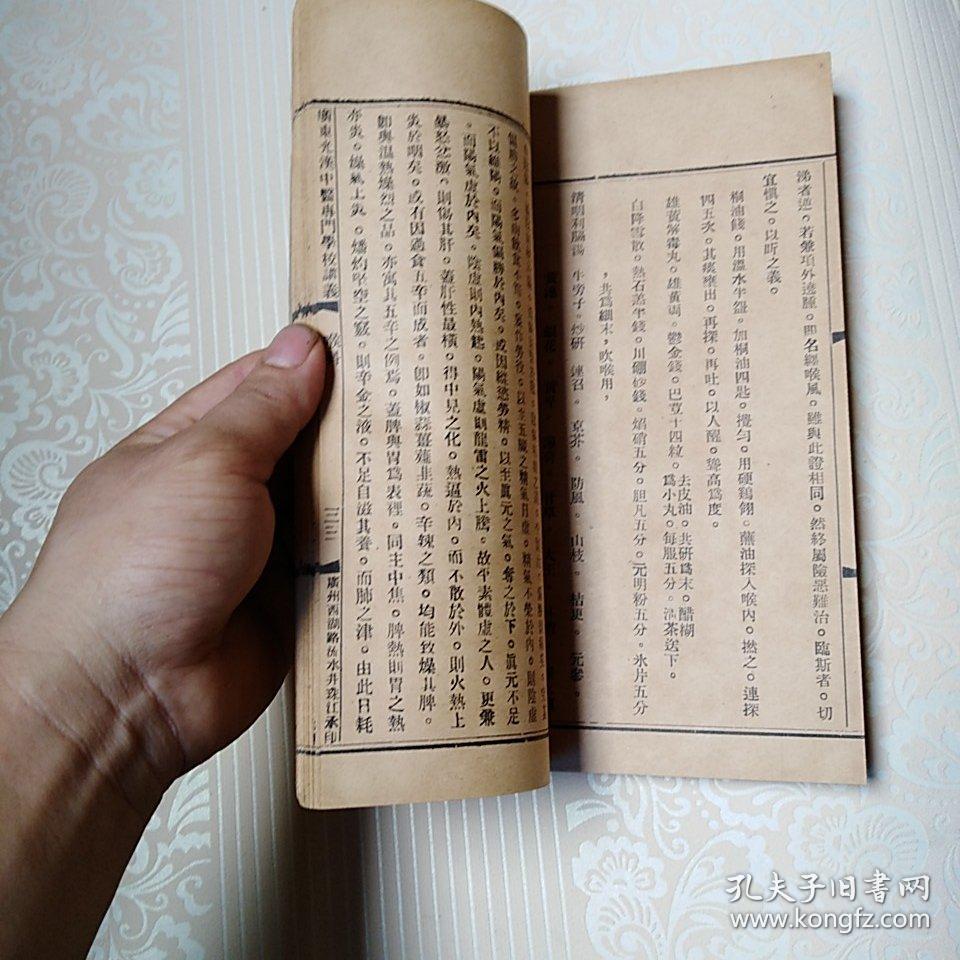 涕者逆。若兼項外邊腫。即名纏喉風。雖與此證相同。然終屬險惡難治。臨斯者。切
宜慎之。以听之義。
桐油錢。用溫水半盌。加桐油四匙。攪勻。用硬鷄翎。蘸油探入喉內。撚之。連探
四五次。其痰壅出。再探。再吐。以人醒。聲高爲度。
雄黃解毒丸。雄黃両。鬱金錢。巴荳十四粒。去皮油。共研爲末。醋糊
爲小丸。每服五分。清茶送下。
白降雪散。熱石羔半錢。川硼砂錢。焰硝五分。胆凡五分。元明粉五分。氷片五分
，共爲細末，吹喉用，
清咽利膈湯 牛旁子。炒研 連召。京芥。防風。山枝。桔更。元參。
不以維陽。而陽氣偏勝於內矣。或因縱慾勞精。以至眞元之氣。奪之於下。眞元不足
。而陽氣虛於內矣。陰虛則內熱起。陽氣虛則龍雷之火上騰。故平素體虛之人。更兼
暴怒忿激。則傷其肝。蓋肝性最橫。得中見之化。熱逼於內。而不散於外。則火熱上
炎於咽矣。或有因過食五辛而成者。卽如椒蒜薑薤韭蔬。辛辣之類。均能致燥其脾。
卽與温熱燥烈之品。亦寓其五辛之例焉。蓋脾與胃爲表裡。同主中焦。脾熱則胃之熱
亦炎。燥氣上炎。燔灼空之竅。則辛金之液。不足自滋其養。而肺之津。由此日耗
廣東光漢中醫專門學校講義
三三
廣州西湖路流水井珠江承印
孔夫子旧書网
www.kongfz.com